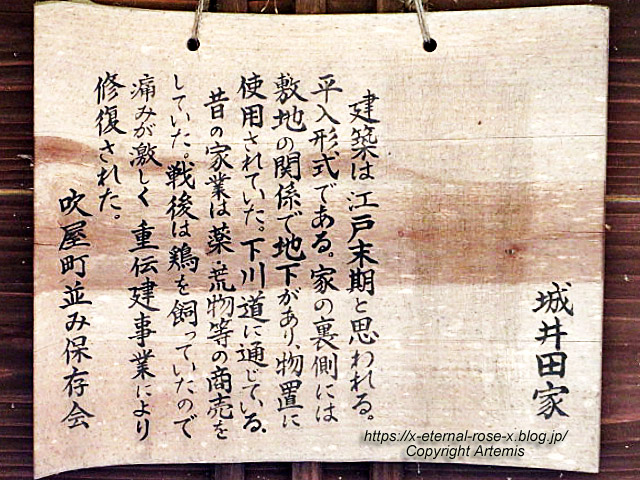 城井田家
建築は江戸末期と思われる。
平入形式である。家の裏側には
敷地の関係で地下があり、物置に
使用されていた。下川道に通じている.
昔の家業は薬・荒物等の商売を
していた。戦後は鶏を飼っていたので
痛みが激しく重伝建事業により
修復された。
吹屋町並み保存会
https://x-eternal-rose-x.blog.jp/
Copyright Artemis